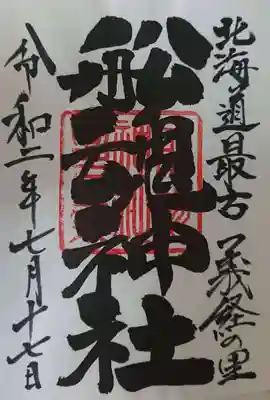 北海道最古 義経の里
船魂神社
令和二年七月十七日